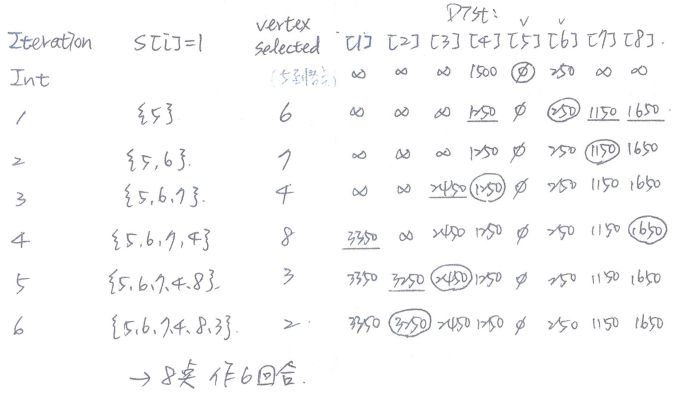 Dist:
Iteration S[i]=1 vertex selected [1] [2] [3] [4] [5] [6] [7] [8].
Int ∞ ∞ ∞ 1500 0 250 ∞ ∞
1 {5} 6 ∞ ∞ ∞ 1250 0 250 1150 1650
2 {5,6} 7 ∞ ∞ ∞ 1250 0 250 1150 1650
3 {5,6,7}. 4 ∞ ∞ 2450 1250 0 250 1150 1650
4 {5,6,7,4} 8 3350 ∞ 2450 1250 0 250 1150 1650
5 {5,6,7,4,8}. 3 3350 3250 2450 1250 0 250 1150 1650
6 {5,6,7,4,8,3}. 2 3350 3250 2450 1250 0 250 1150 1650
→ 8點 作6回合.